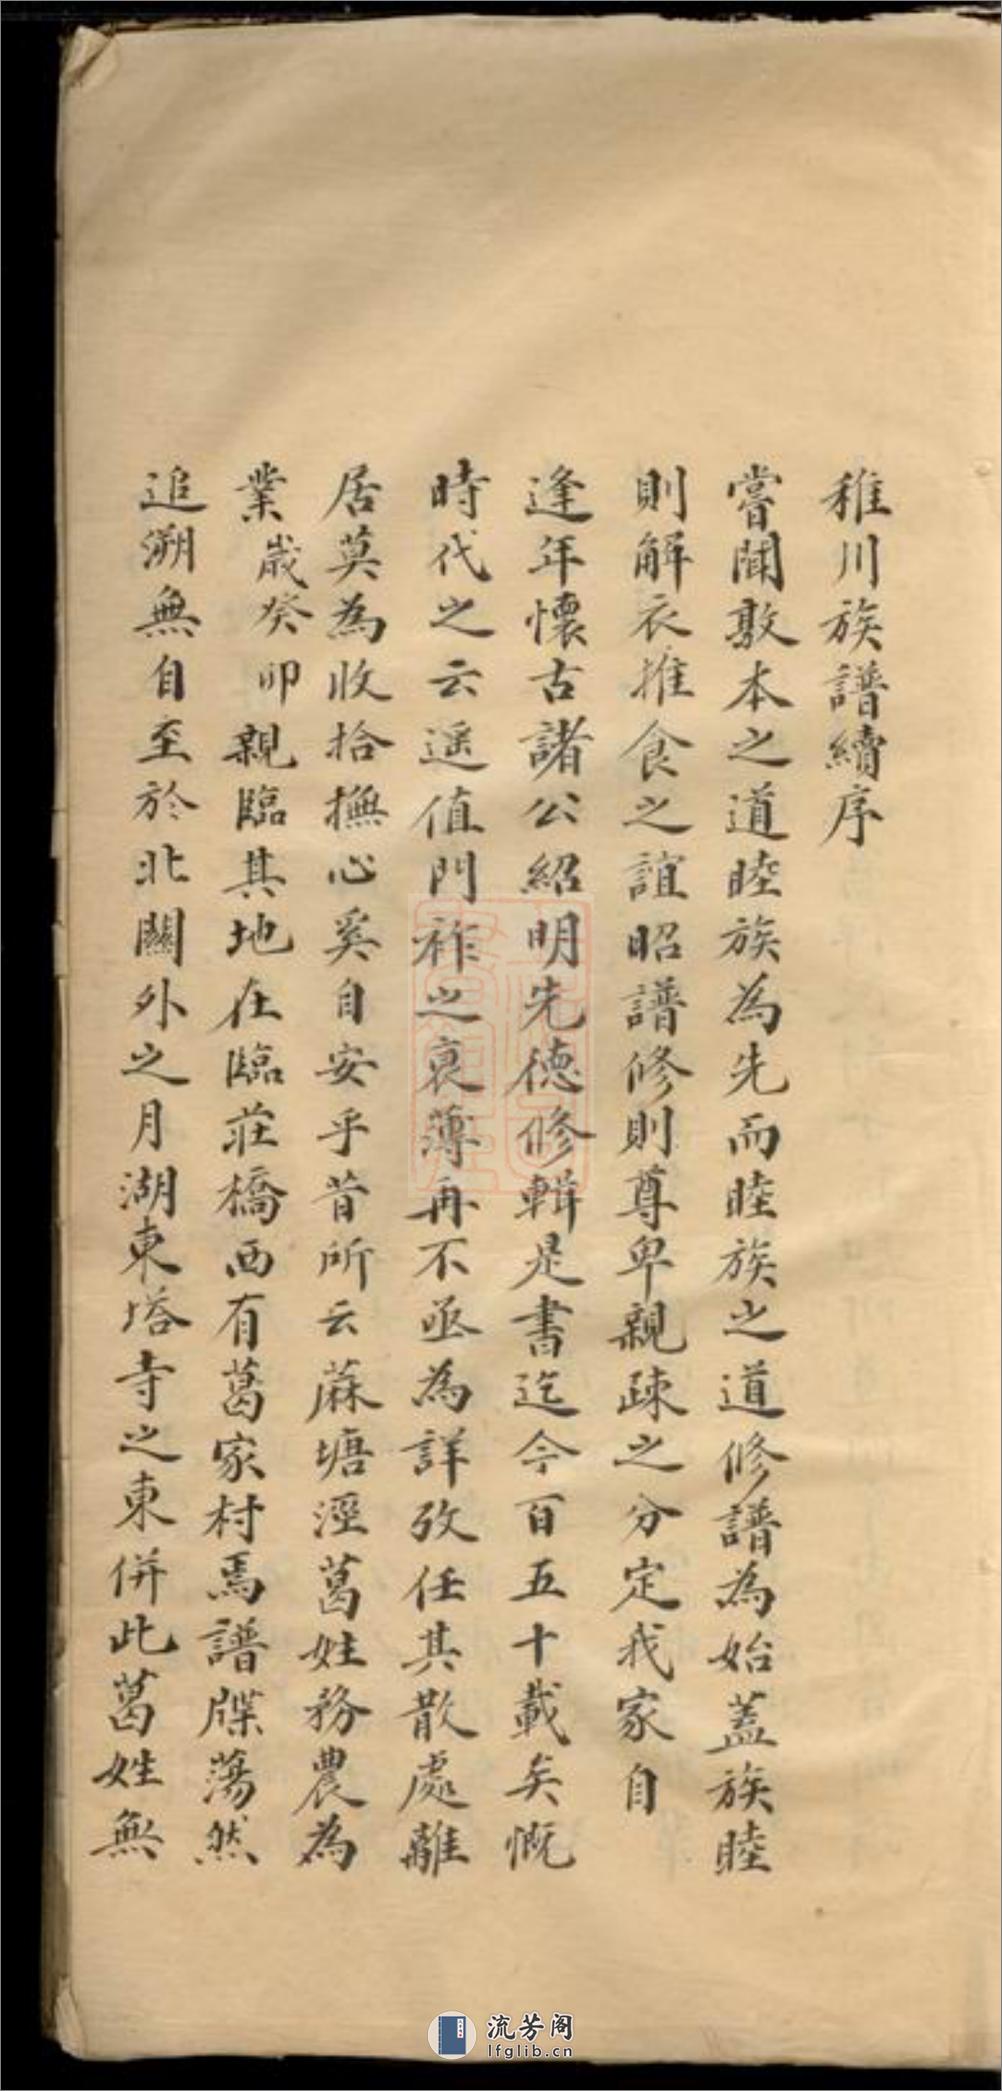 稚川族譜續序
嘗聞敦本之道睦族為先而睦族之道修譜為始蓋族睦
則解衣推食之誼昭譜修則尊卑親疎之分定我家自
逢年懷古諸公紹明先德修輯是書迄今百五十載矣慨
時代之云遥值門祚之衰薄再不亟為詳攷任其散處離
居莫為收拾撫心奚自安乎昔所云蔴塘涇葛姓務農為
業歲癸卯親臨其地在臨莊橋西有葛家村焉譜牒蕩然
追溯無自至於北關外之月湖東塔寺之東併此葛姓無
流芳阁
lfglib.cn